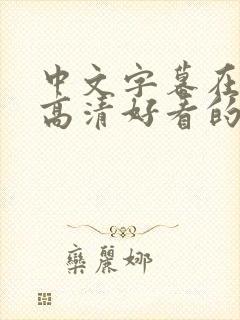 中文字幕在
高清好看的
栾麗娜